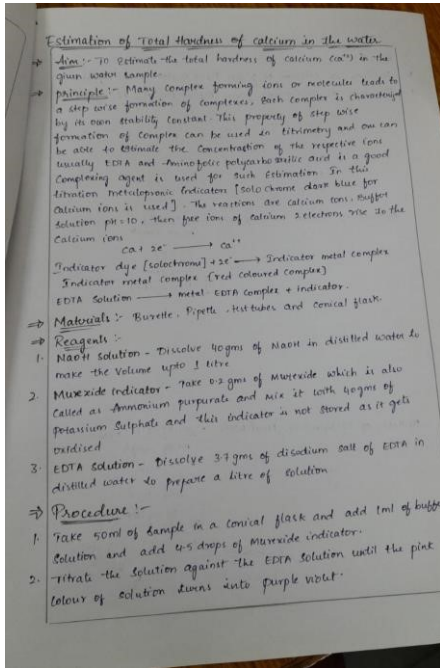 Estimation of Total Hardness of calcium in the water
⇒ Aim:- To Estimate the total hardness of calcium (ca²⁺) in the
given water sample.
⇒ principle:- Many complex forming ions or molecules leads to
a step wise formation of complexes. Each complex is characterized
by its own stability constant. This property of step wise
formation of complex can be used in titrimetry and one can
be able to estimate the concentration of the respective ions
usually EDTA and Aminofolic polycarboxilic acid is a good
complexing agent is used for such Estimation. In this
titration metallopronic indicators [solo chrome dark blue for
calcium ions is used]. The reactions are calcium ions. Buffer
solution pH=10, then free ions of calcium 2 electrons rise to the
Calcium ions
Ca + 2e⁻ ⟶ Ca²⁺
Indicator dye [solochrome] + 2e⁻ ⟶ Indicator metal complex
Indicator metal complex [red coloured complex]
EDTA Solution ⟶ metal EDTA complex + indicator.
⇒ Materials:- Burette, Pipette, test tubes and conical flask.
⇒ Reagents:-
1. NaOH solution - Dissolve 40gms of NaOH in distilled water to
make the volume upto 1 litre
2. Murexide indicator - Take 0.2 gms of Murexide which is also
called as Ammonium purpurate and mix it with 40gms of
potassium Sulphate and this indicator is not stored as it gets
oxidised
3. EDTA solution - Dissolve 3.7 gms of disodium salt of EDTA in
distilled water to prepare a litre of solution
⇒ Procedure:-
1. Take 50ml of sample in a conical flask and add 1ml of buffer
solution and add 4-5 drops of Murexide indicator.
2. Titrate the solution against the EDTA solution until the pink
colour of solution turns into purple violet.